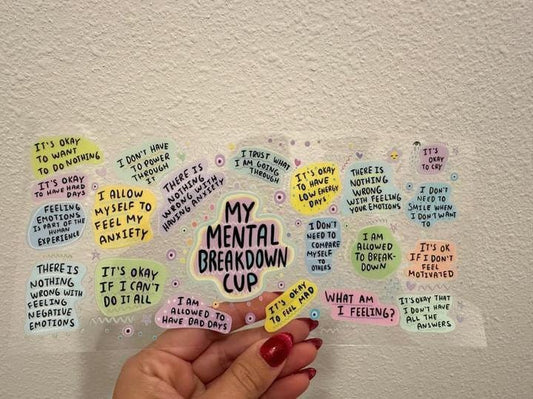 IT'S OKAY
TO WANT
TO DO NOTHING
IT'S OKAY
TO HAVE HARD
DAYS
FEELING
EMOTIONS
IS PART OF THE
HUMAN
EXPERIENCE
THERE IS
NOTHING
WRONG WITH
FEELING
NEGATIVE
EMOTIONS
I DON'T HAVE
TO POWER
THROUGH
I ALLOW
MYSELF TO
FEEL MY
ANXIETY
IT'S OKAY
IF I CAN'T
DO IT ALL
THERE IS
NOTHING
WRONG WITH
HAVING ANXIETY
I AM
ALLOWED TO
HAVE BAD DAYS
I TRUST WHAT
I AM GOING
THROUGH
MY
MENTAL
BREAKDOWN
CUP
IT'S OKAY
TO FEEL MAD
IT'S OKAY
TO HAVE
LOW ENERGY
DAYS
I DON'T
NEED TO
COMPARE
MYSELF
TO
OTHERS
THERE IS
NOTHING
WRONG
WITH FEELING
YOUR EMOTIONS
I AM
ALLOWED
TO BREAK-
DOWN
WHAT AM
I FEELING?
IT'S
OKAY
TO CRY
I DON'T
NEED TO
SMILE WHEN
I DON'T WANT
TO
IT'S OK
IF I DON'T
FEEL
MOTIVATED
IT'S OKAY THAT
I DON'T HAVE
ALL THE
ANSWERS